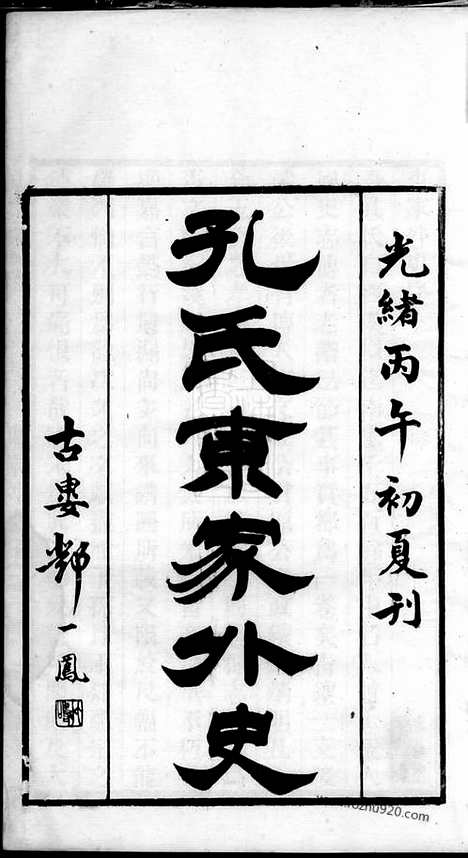 光緒丙午初夏刊
孔氏東家外史
古婁鄒一鳳